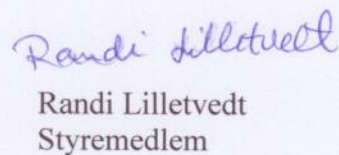 Randi Lilletvedt
Randi Lilletvedt
Styremedlem